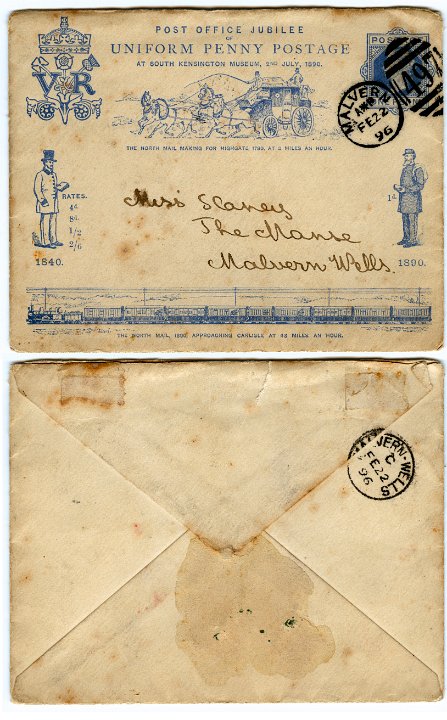 POST OFFICE JUBILEE
OF
UNIFORM PENNY POSTAGE
AT SOUTH KENSINGTON MUSEUM, 2ND JULY, 1890.
VR
POST
497
MALVERN
FE 22
96
THE NORTH MAIL MAKING FOR HIGHGATE 1790. AT 8 MILES AN HOUR.
RATES.
4d
8d.
1/2
2/6
1d
Miss Slaney
The Manse
Malvern Wells.
1840.
1890.
THE NORTH MAIL, 1890, APPROACHING CARLISLE AT 48 MILES AN HOUR.
MALVERN-WELLS
C
FE 22
96